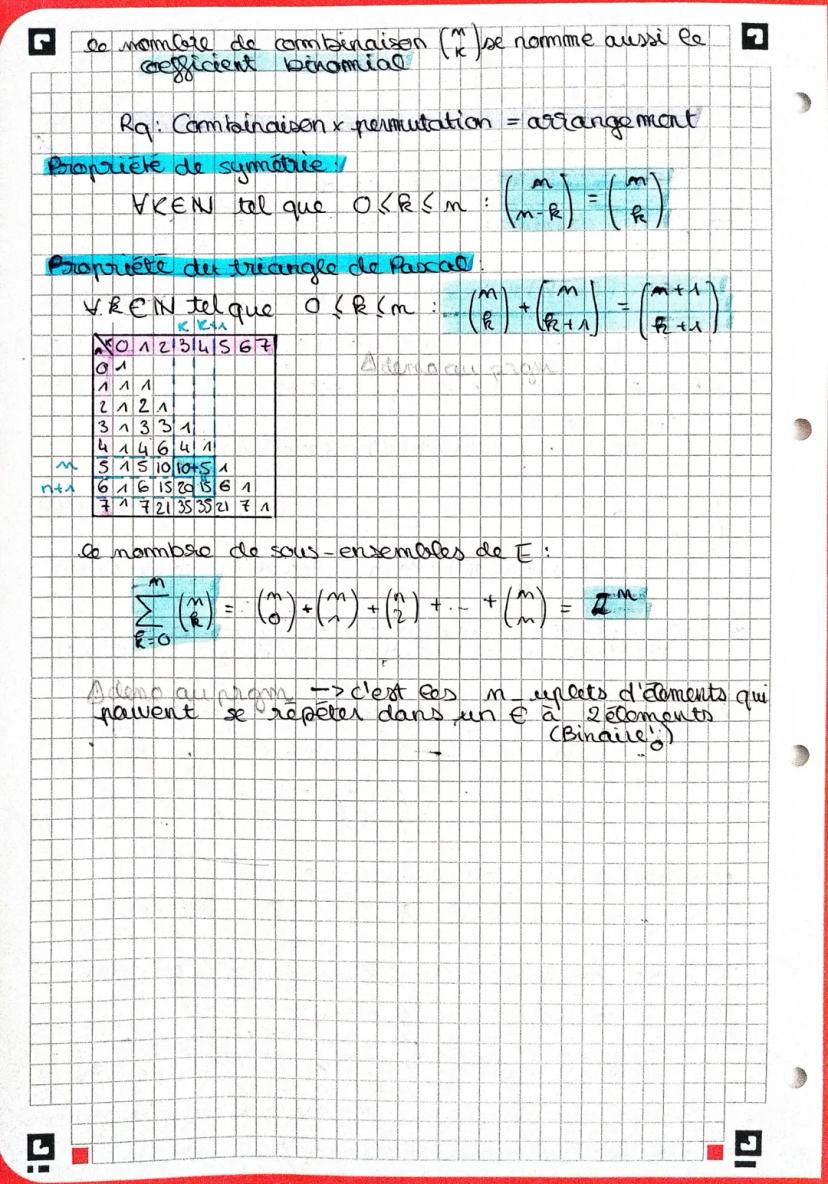 Le nombre de combinaison (n k) se nomme aussi le
coefficient binomial
Rq : Combinaison x permutation = arrangement
Propriété de symétrie :
∀KEIN tel que 0 ≤ k ≤ n : (n n-k) = (n k)
Propriété du triangle de Pascal :
∀KEIN tel que 0 ≤ k ≤ n : (n k) + (n k+1) = (n+1 k+1)
K K+1
n K 0 1 2 3 4 5 6 7
0 1
1 1 1
2 1 2 1
3 1 3 3 1
4 1 4 6 4 1
n 5 1 5 10 10+5 1
n+1 6 1 6 15 20 15 6 1
7 1 7 21 35 35 21 7 1
Le nombre de sous-ensembles de E :
n ∑ k=0 (n k) = (n 0) + (n 1) + (n 2) + ... + (n n) = 2^n
Adeno au prgm -> c'est les n-uplets d'éléments qui
peuvent se répéter dans un E à 2 éléments
(Binaire !)